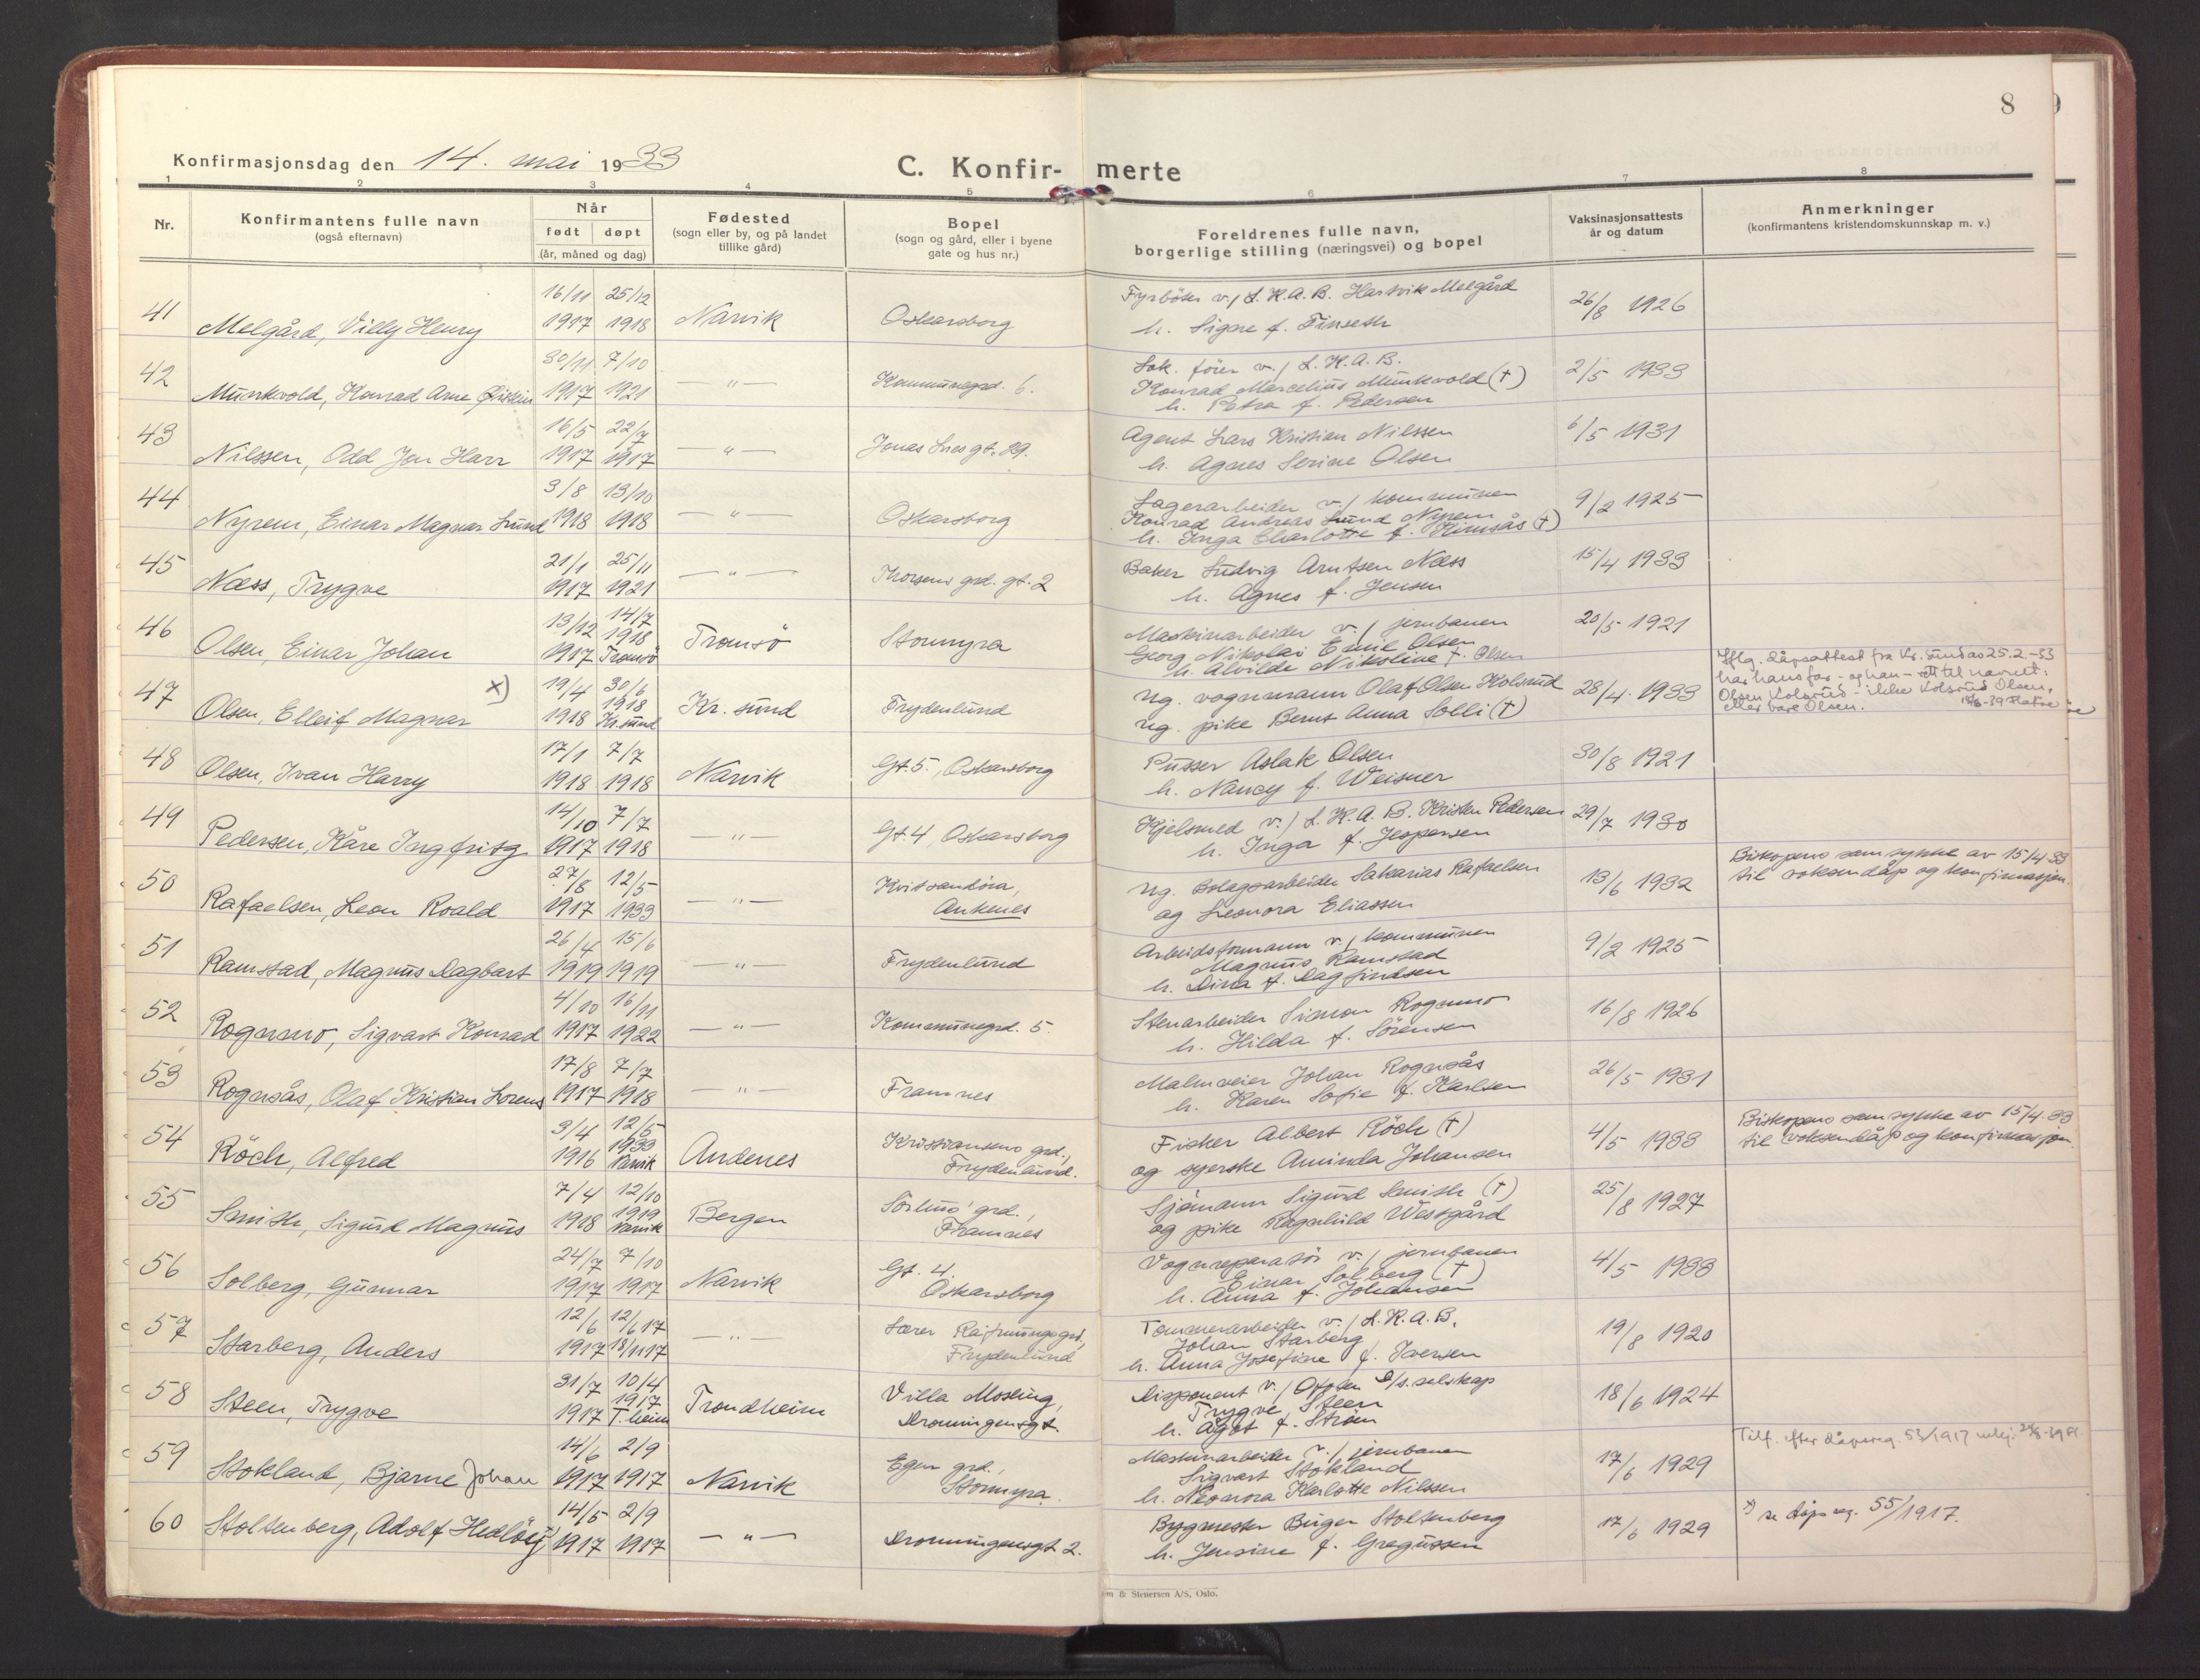 8
Konfirmasjonsdag den 14. mai 1933
C. Konfir- merte
1 2 3 4 5 6 7 8
Nr.
Konfirmantens fulle navn
(også efternavn)
Når
født døpt
(år, måned og dag)
Fødested
(sogn eller by, og på landet
tillike gård)
Bopel
(sogn og gård, eller i byene
gate og hus nr.)
Foreldrenes fulle navn,
borgerlige stilling (næringsvei) og bopel
Vaksinasjonsattests
år og datum
Anmerkninger
(konfirmantens kristendomskunnskap m. v.)
41 Melgård, Villy Henry 16/11 1917 25/12 1918 Narvik Oskarsborg
Fyrböter v./ L.K.A.B. Hartvik Melgård
h. Signe f. Finseth
26/8 1926
42 Munkvold, Konrad Arne Øistein 30/11 1917 7/10 1921 — " — Kommunegrd. 6.
Lok. förer v./ L.K.A.B.
Konrad Marcelius Munkvold (†)
h. Petra f. Pedersen
2/5 1933
43 Nilssen, Odd Jon Harr 16/5 1917 22/7 1917 — " — Jonas Lies gt. 29.
Agent Lars Kristian Nilssen
h. Agnes Serine Olsen
6/5 1931
44 Nyrem, Einar Magnar Lund 3/8 1918 13/10 1918 — " — Oskarsborg
Lagerarbeider v./ kommunen
Konrad Andreas Lund Nyrem
h. Inga Charlotte f. Himsås (†)
9/2 1925
45 Næss, Trygve 21/1 1917 25/11 1921 — " — Thorsens grd. gt. 2
Baker Ludvig Arntsen Næss
h. Agnes f. Jensen
15/4 1933
46 Olsen, Einar Johan 13/12 1917 14/7 1918 Tromsö Tromsö Stormyra
Maskinarbeider v./ jernbanen
Georg Nikolai Emil Olsen
h. Alvilde Nikoline f. Olsen
20/5 1921
47 Olsen, Elleif Magnar x) 19/4 1918 30/6 1918 Kr.sund Kr. sund Frydenlund
Ug. vognmann Olaf Olsen Kolsrud
ug. pike Bernt Anna Solli (†)
28/4. 1933
Iflg. dåpsattest fra Kr. sund as 25.2.-33
har hans far - og han - rett til navnet:
Olsen Kolsrud - ikke Kolsrud Olsen,
eller bare Olsen.
48 Olsen, Ivan Harry 17/1 1918 7/7 1918 Narvik Gt. 5, Oskarsborg
Pusser Aslak Olsen
h. Nancy f. Weisner
30/8 1921
49 Pedersen, Kåre Ingfrits 14/10 1917 7/7 1918 — " — Gt. 4, Oskarsborg
Kjelsmed v./ L.K.A.B. Kristen Pedersen
h. Inga f. Jespersen
29/7 1930
50 Rafaelsen, Leon Roald 27/8 1917 12/5 1933 — " — Kvitsandöra,
Ankenes
Ug. Bolagsarbeider Sakarias Rafaelsen
og Leonora Eliassen
13/6 1932
Biskopens samtykke av 15/4 33
til voksendåp og konfirmasjon.
51 Ramstad, Magnus Dagbart 26/4 1919 15/6 1919 — " — Frydenlund
Arbeidsformann v./ kommunen
Magnus Ramstad
h. Dina f. Dagfindsen
9/2 1925
52 Rognmo, Sigvart Konrad 4/10 1917 16/11 1922 — " — Kommunegrd. 5.
Stenarbeider Simon Rognmo
h. Hilda f. Sörensen
16/8 1926
53 Rognsås, Olaf Kristian Lorens 17/8 1917 7/7 1918 — " — Framnes
Malmveier Johan Rognsås
h. Karen Sofie f. Karlsen
26/5 1931
54 Röch, Alfred 3/4 1916 12/5 1933 Narvik Andenes Kristiansens grd.,
Frydenlund.
Fisker Albert Röch (†)
og syerske Aminda Johansen
4/5 1933
Biskopens samtykke av 15/4 33
til voksendåp og konfirmasjon.
55 Smith, Sigurd Magnus 7/4 1918 12/10 1919 Narvik Bergen Sörlius' grd.,
Framnes
Sjömann Sigurd Smith (†)
og pike Ragnhild Westgård
25/8 1927
56 Solberg, Gunnar 24/7 1917 7/10 1917 Narvik Gt. 4.
Oskarsborg
Vognreparatör v./ jernbanen
Einar Solberg (†)
h. Anna f. Johansen
4/5 1933
57 Starberg, Anders 12/6 1917 12/6 17 18/11 17 — " — Lærer Grd.,
Frydenlund
Tömmerarbeider v./ L.K.A.B.
Johan Starberg
h. Anna Josefine f. Iversen
19/8 1920
58 Steen, Trygve 31/7 1917 10/4 1917 T.heim Trondheim Villa Mosling,
Dronningensgt.
Disponent v./ Ofoten D/s. selskap
Trygve Steen
h. Ågot f. Ström
18/6 1924
59 Stokland, Bjarne Johan 14/6 1917 2/9 1917 Narvik Egen grd.,
Stormyra.
Maskinarbeider v./ jernbanen
Sigvart Stokland
h. Neonora Karlotte Nilssen
17/6 1929
Tilf. efter dåpsreg. 53/1917
60 Stoltenberg, Adolf Hedlöv 14/5 1917 2/9 1917 — " — Dronningensgt 2.
Bygmester Birger Stoltenberg
h. Jensine f. Gregussen
17/6 1929
x) se dåpsreg. 55/1917.
& Stenersen A/S, Oslo.